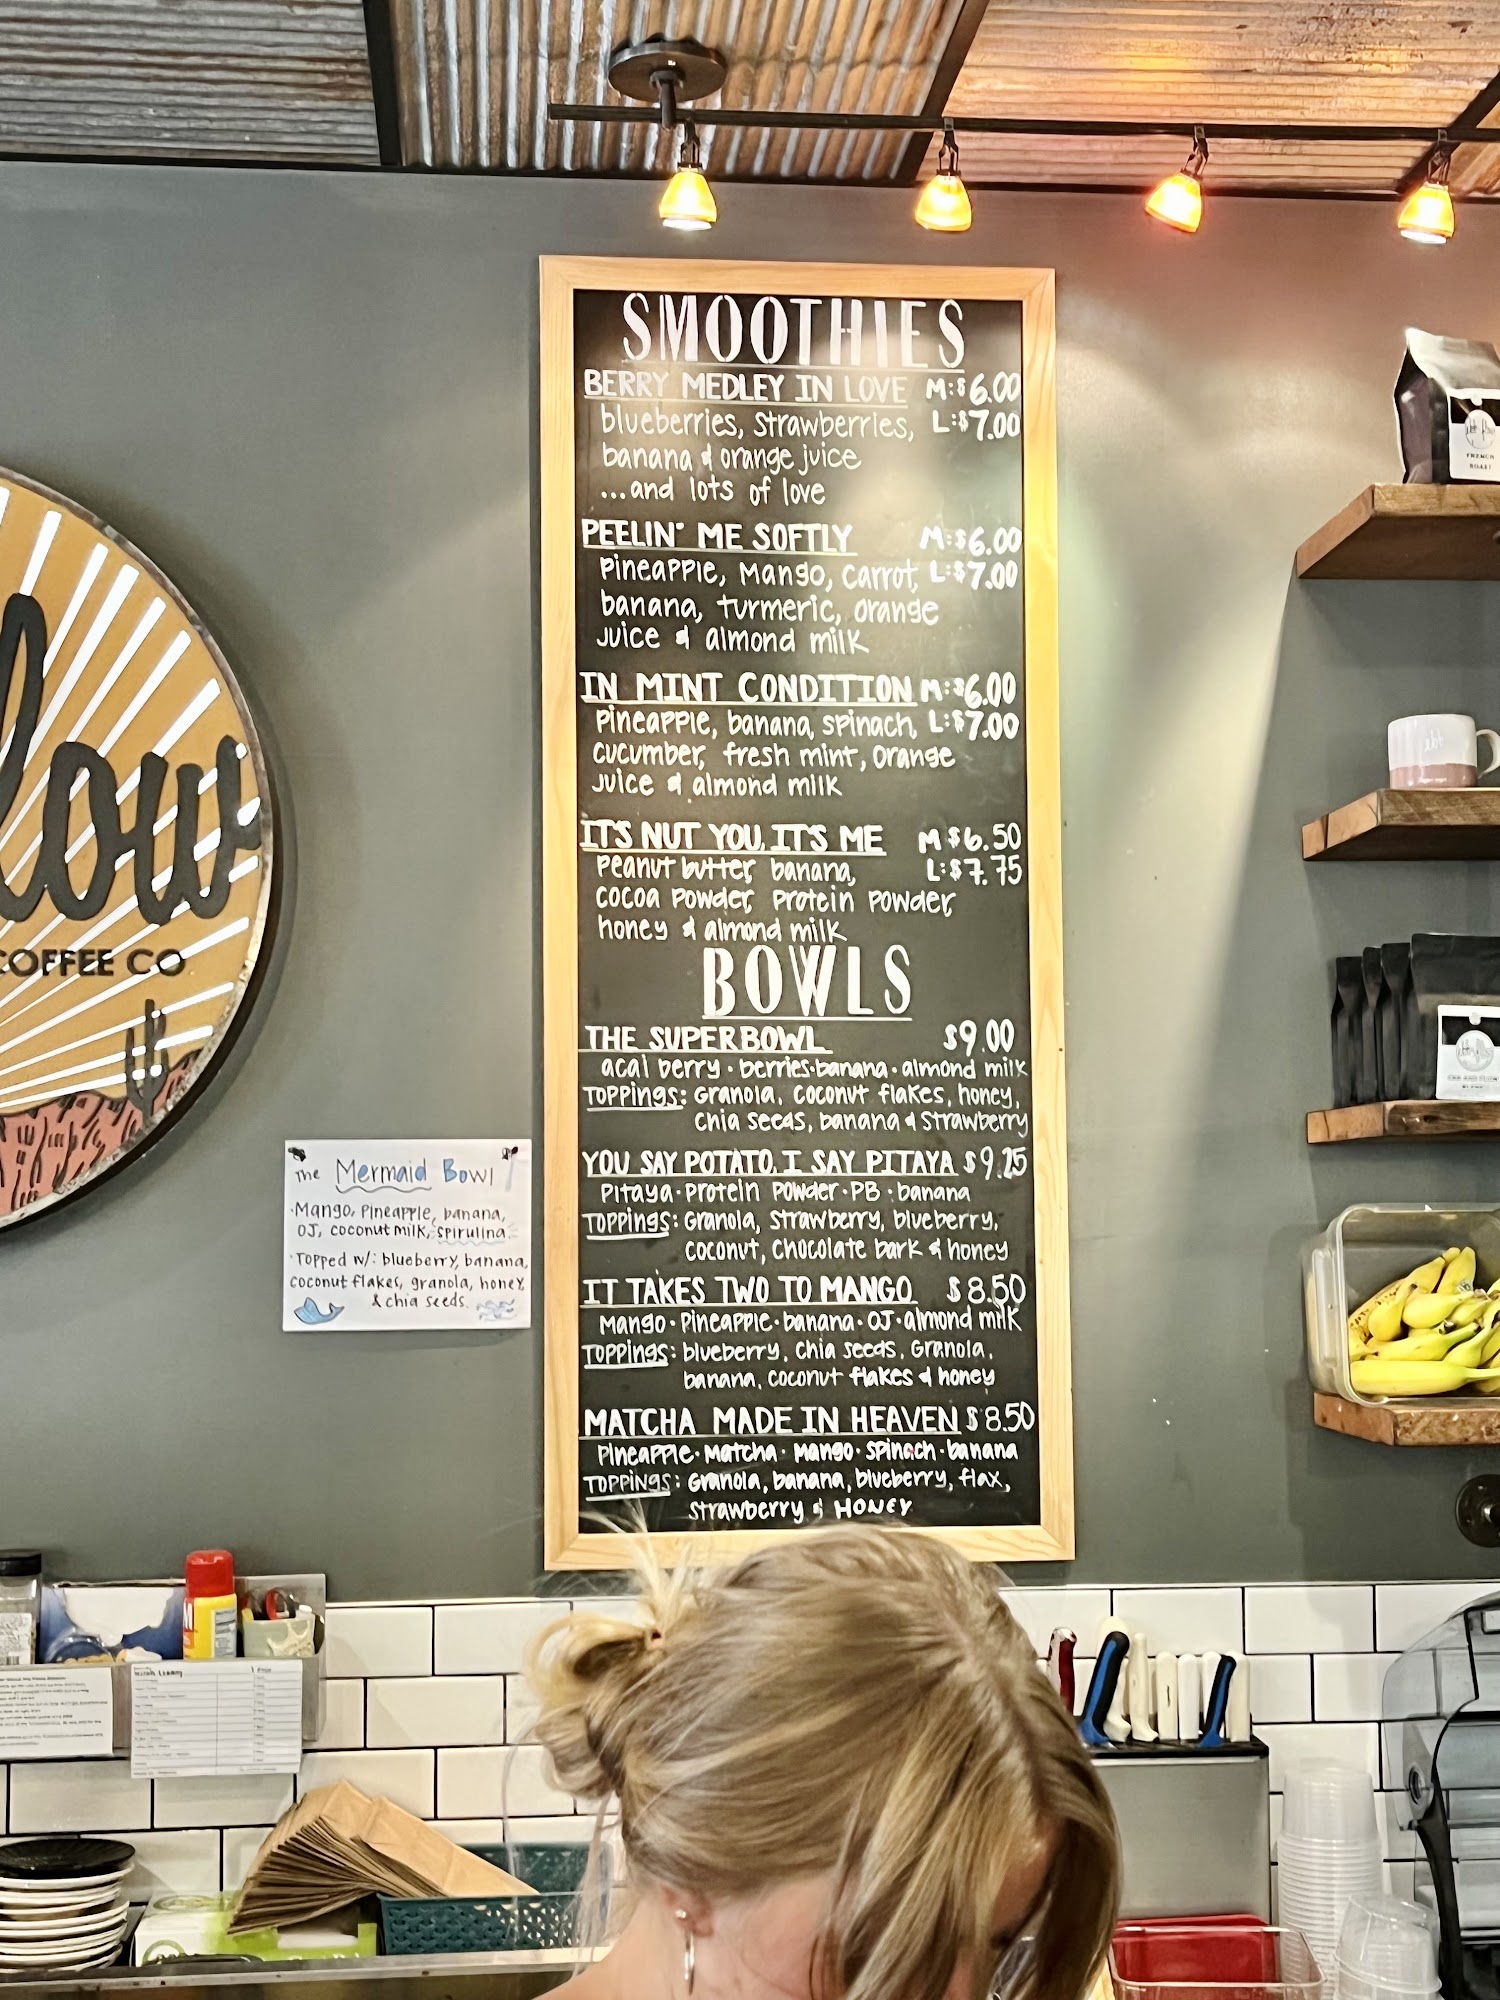 SMOOTHIES
BERRY MEDLEY IN LOVE M:$6.00
blueberries, strawberries, L:$7.00
banana & orange juice
...and lots of love
PEELIN' ME SOFTLY M:$6.00
pineapple, mango, carrot, L:$7.00
banana, turmeric, orange
juice & almond milk
IN MINT CONDITION M:$6.00
pineapple, banana, spinach, L:$7.00
cucumber, fresh mint, orange
juice & almond milk
IT'S NUT YOU, IT'S ME M $6.50
peanut butter, banana, L:$7.75
cocoa powder, protein powder,
honey & almond milk
BOWLS
THE SUPERBOWL $9.00
acai berry · berries · banana · almond milk
TOPPINGS: granola, coconut flakes, honey,
chia seeds, banana & strawberry
YOU SAY POTATO, I SAY PITAYA $9.25
pitaya · protein powder · PB · banana
TOPPINGS: granola, strawberry, blueberry,
coconut, chocolate bark & honey
IT TAKES TWO TO MANGO $8.50
mango · pineapple · banana · OJ · almond milk
TOPPINGS: blueberry, chia seeds, granola,
banana, coconut flakes & honey
MATCHA MADE IN HEAVEN $8.50
pineapple · matcha · mango · spinach · banana
TOPPINGS: granola, banana, blueberry, flax,
strawberry & HONEY
The Mermaid Bowl
·Mango, pineapple, banana,
OJ, coconut milk, spirulina
·Topped w/: blueberry, banana,
coconut flakes, granola, honey,
& chia seeds.
low
COFFEE CO
FRENCH
ROAST
ebt